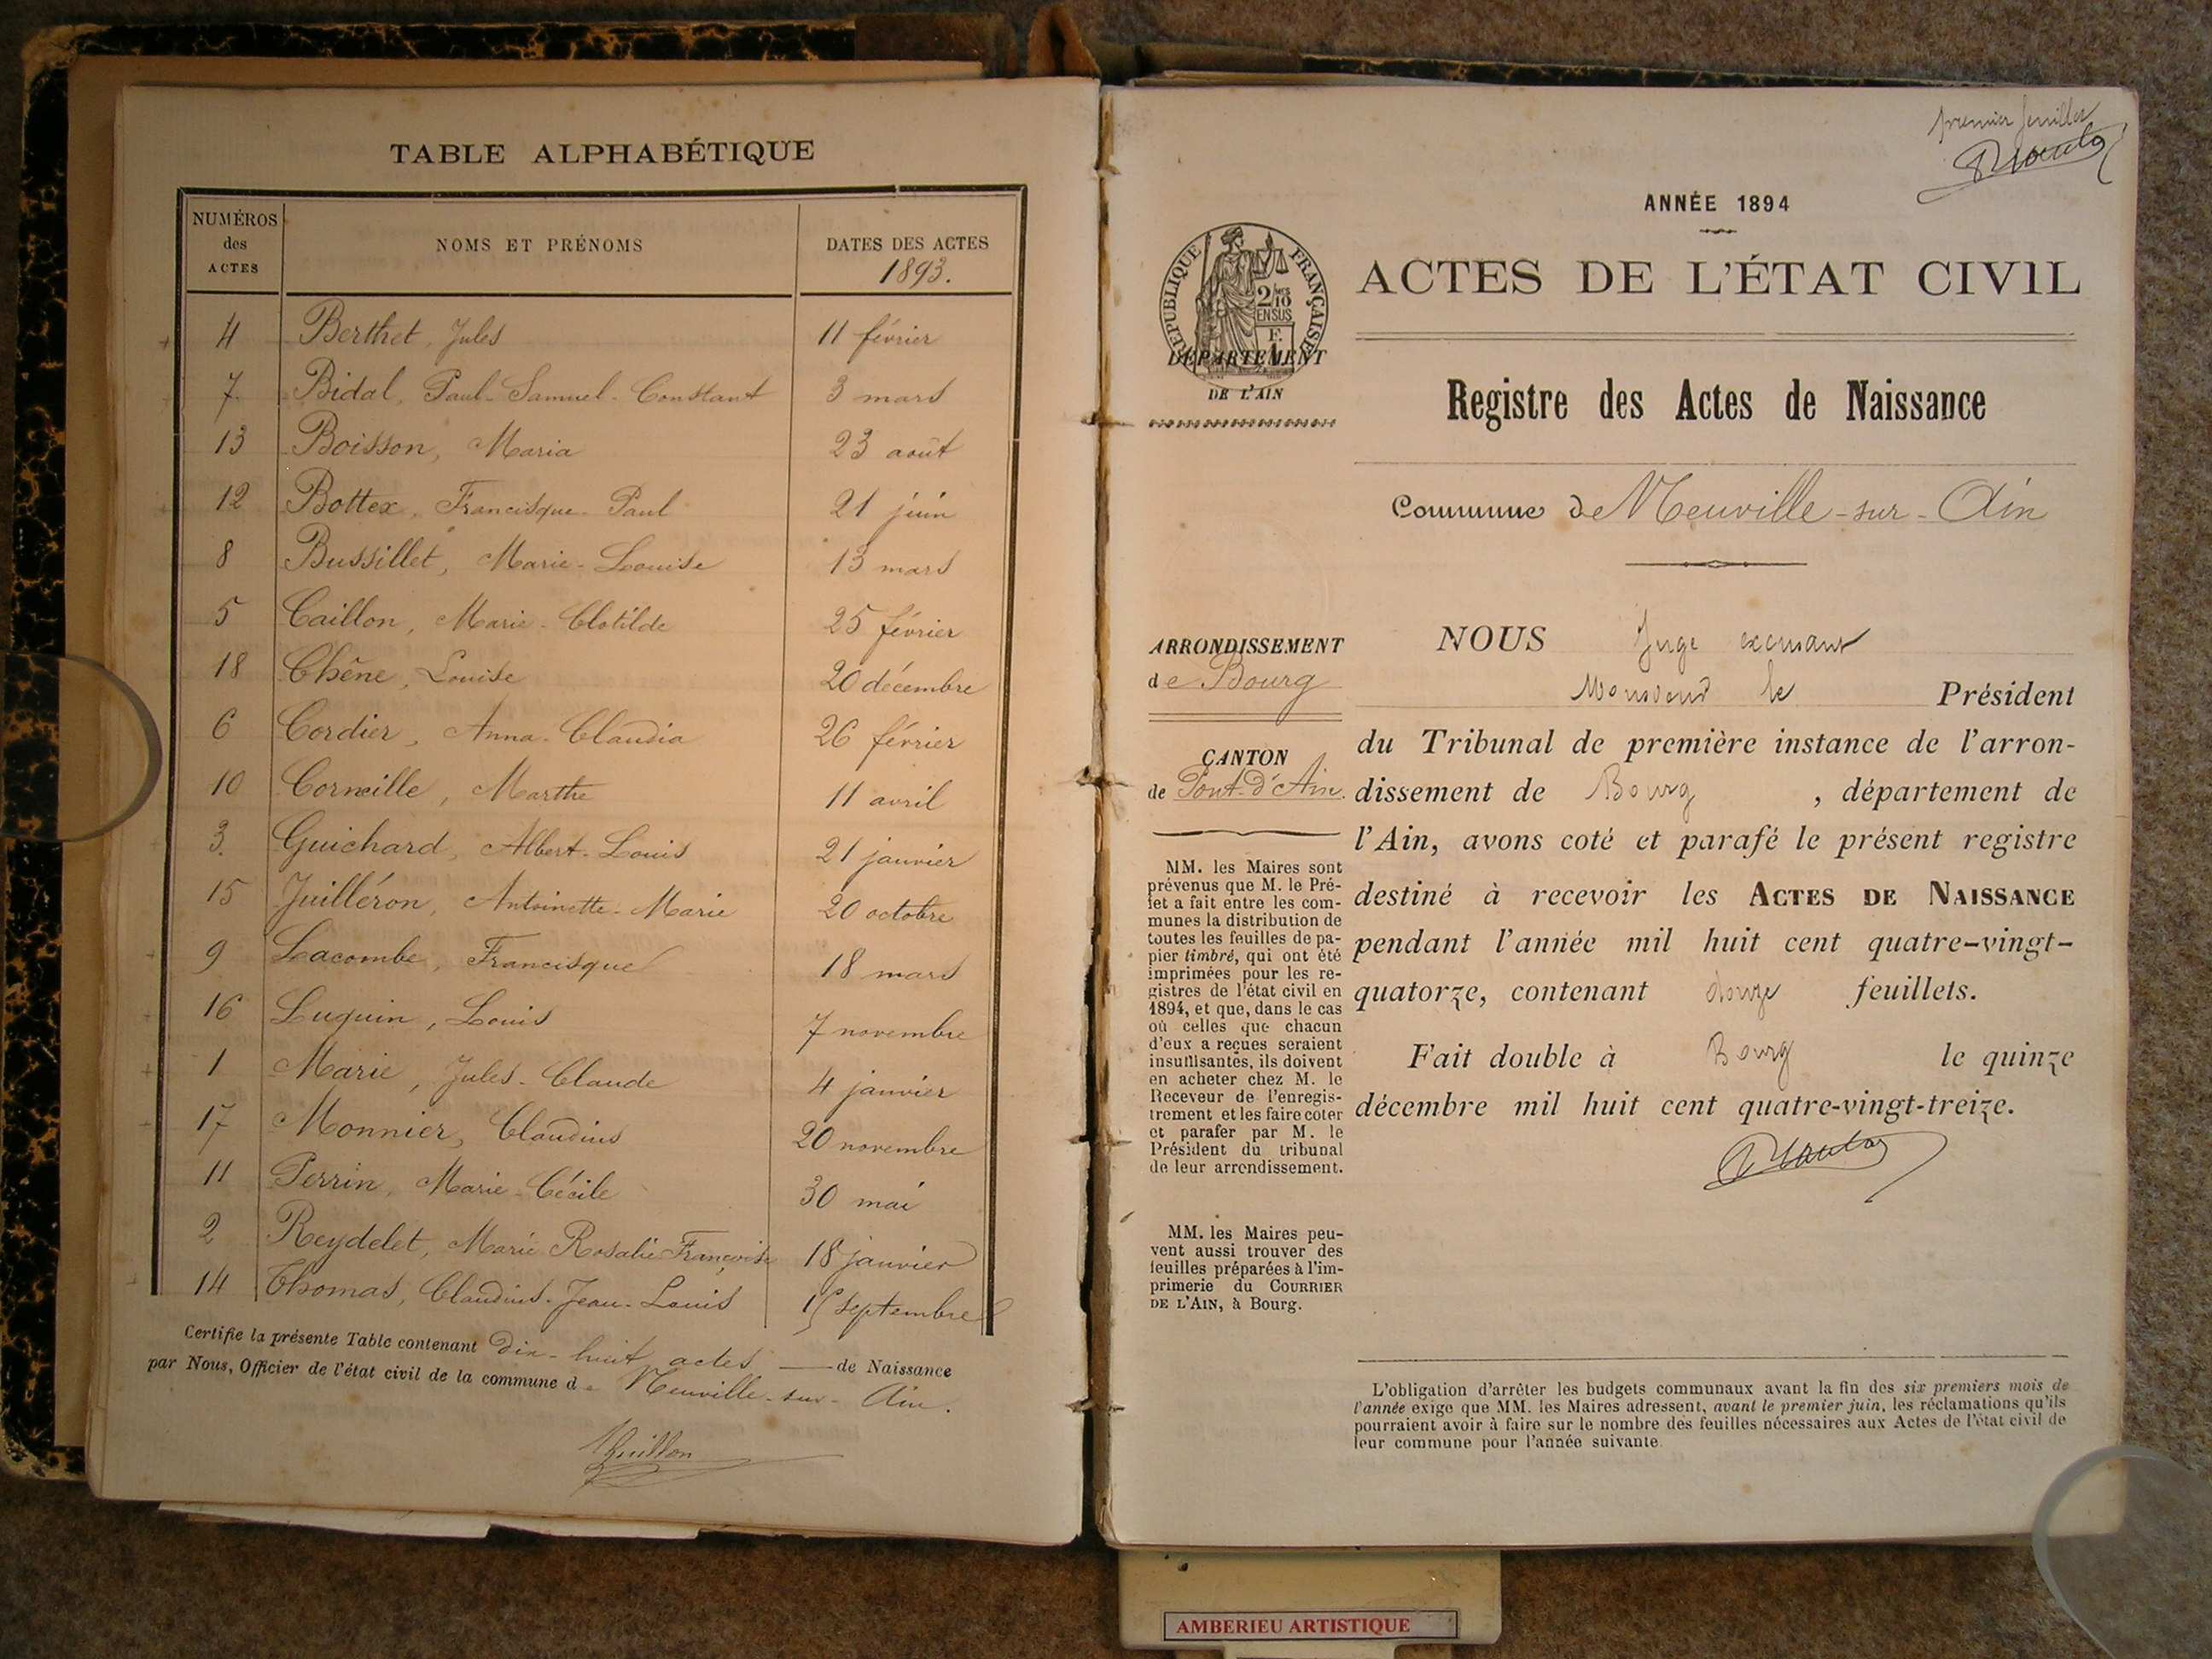 TABLE ALPHABÉTIQUE
NUMÉROS des ACTES
NOMS ET PRÉNOMS
DATES DES ACTES 1893.
4 Berthet, Jules 11 février
7. Bidal, Paul-Samuel-Constant 3 mars
13 Boisson, Maria 23 août
12 Bottex, Francisque-Paul 21 juin
8 Bussillet, Marie-Louise 13 mars
5 Caillon, Marie-Clotilde 25 février
18 Chêne, Louise 20 décembre
6 Cordier, Anna-Claudia 26 février
10 Corneille, Marthe 11 avril
3. Guichard, Albert-Louis 21 janvier
15 Juilléron, Antoinette-Marie 20 octobre
9 Lacombe, Francisque 18 mars
16 Luquin, Louis 7 novembre
1 Marie, Jules-Claude 4 janvier
17 Monnier, Claudius 20 novembre
11 Perrin, Marie-Cécile 30 mai
2 Reydelet, Marie Rosalie Françoise 18 janvier
14 Thomas, Claudius-Jean-Louis 15 septembre
Certifie la présente Table contenant Dix-huit actes de Naissance
par Nous, Officier de l'état civil de la commune de Neuville-sur-Ain.
premier feuillet
ANNÉE 1894
RÉPUBLIQUE FRANÇAISE
2/10 EN SUS
DÉPARTEMENT
DE L'AIN
ACTES DE L'ÉTAT CIVIL
Registre des Actes de Naissance
Commune de Neuville-sur-Ain
ARRONDISSEMENT
de Bourg
CANTON
de Pont-d'Ain.
MM. les Maires sont
prévenus que M. le Pré-
fet a fait entre les com-
munes la distribution de
toutes les feuilles de pa-
pier timbré, qui ont été
imprimées pour les re-
gistres de l'état civil en
1894, et que, dans le cas
où celles que chacun
d'eux a reçues seraient
insuffisantes, ils doivent
en acheter chez M. le
Receveur de l'enregis-
trement et les faire coter
et parafer par M. le
Président du tribunal
de leur arrondissement.
MM. les Maires peu-
vent aussi trouver des
feuilles préparées à l'im-
primerie du COURRIER
DE L'AIN, à Bourg.
NOUS Juge
le Président
du Tribunal de première instance de l'arron-
dissement de Bourg, département de
l'Ain, avons coté et parafé le présent registre
destiné à recevoir les ACTES DE NAISSANCE
pendant l'année mil huit cent quatre-vingt-
quatorze, contenant douze feuillets.
Fait double à Bourg le quinze
décembre mil huit cent quatre-vingt-treize.
L'obligation d'arrêter les budgets communaux avant la fin des six premiers mois de
l'année exige que MM. les Maires adressent, avant le premier juin, les réclamations qu'ils
pourraient avoir à faire sur le nombre des feuilles nécessaires aux Actes de l'état civil de
leur commune pour l'année suivante.
AMBERIEU ARTISTIQUE